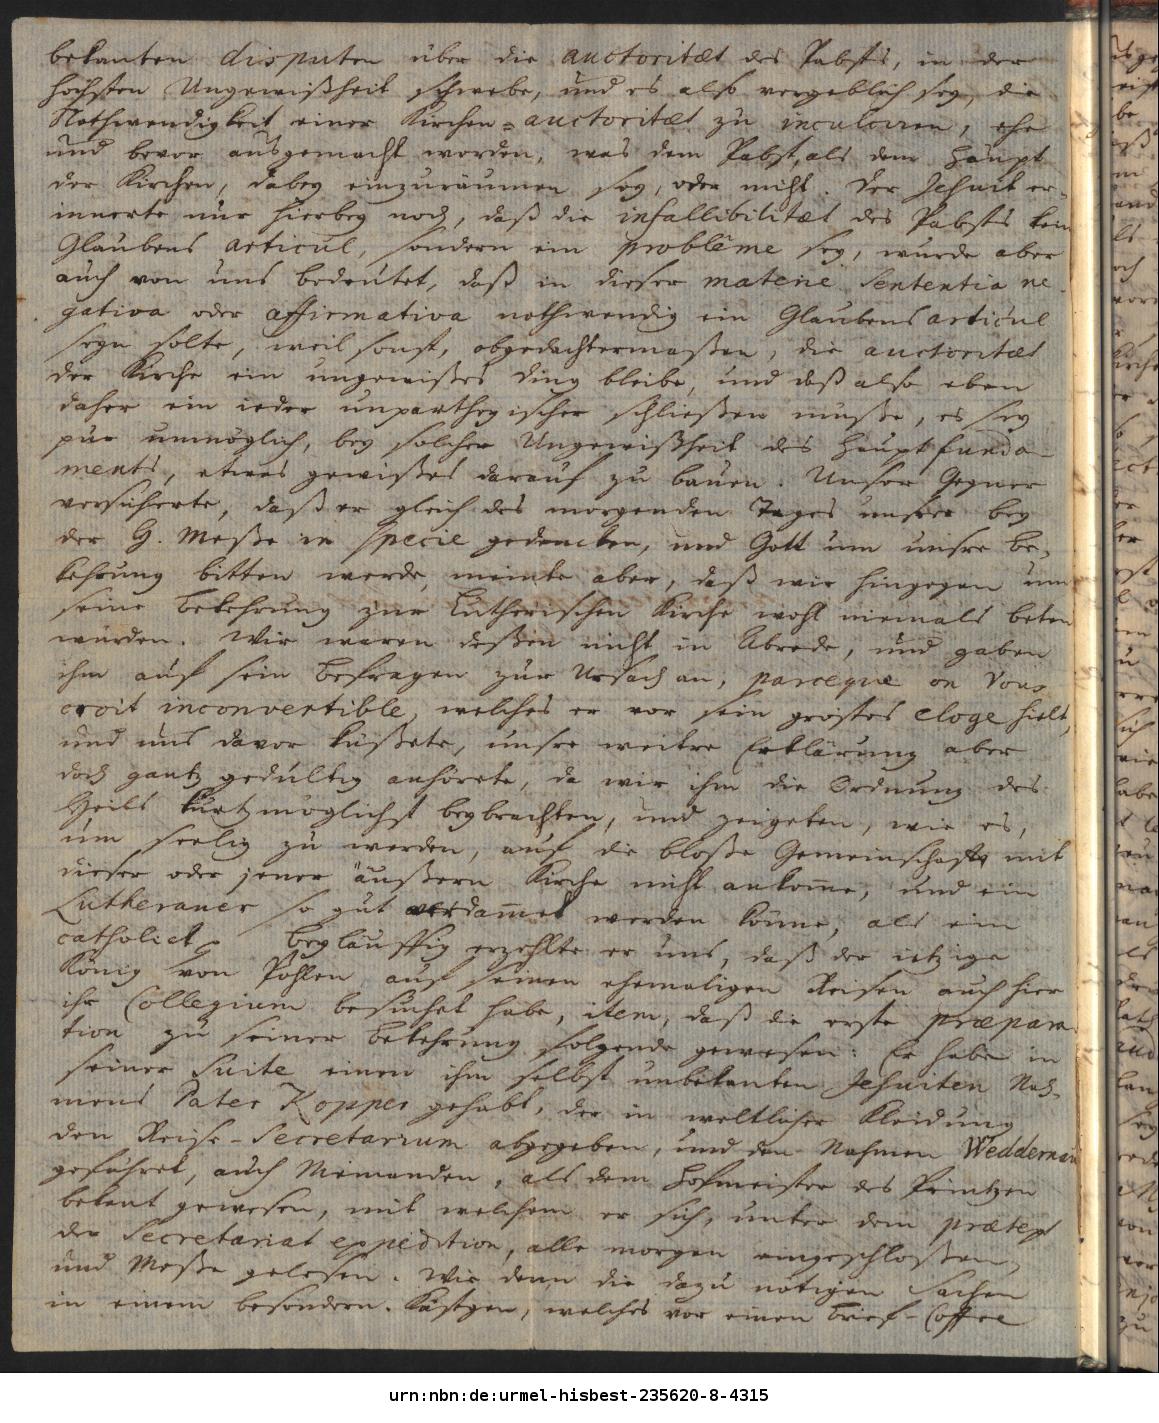 bekanten disputen über die auctoritæt des Pabsts, in der
höchsten Ungewißheit schwebe, und es also vergeblich sey, die
Nothwendigkeit einer Kirchen-auctoritæt zu inculciren, ehe
und bevor ausgemacht worden, was dem Pabst, als dem Haupt
der Kirchen, dabey einzuräumen sey, oder nicht. Der Jesuit er-
innerte nur hierbey noch, daß die infallibilitæt des Pabsts kein
Glaubens articul, sondern ein problême sey, wurde aber
auch von uns bedeutet, daß in dieser materie Sententia ne-
gativa oder affirmativa nothwendig ein Glaubensarticul
seyn solte, weil sonst, obgedachtermaßen, die auctoritæt
der Kirche ein ungewißes Ding bleibe, und daß also eben
daher ein ieder unpartheyischer schließen muße, es sey
pur unmöglich, bey solcher Ungewißheit des Hauptfunda-
ments, etwas gewißes darauf zu bauen. Unser Gegner
versicherte, daß er gleich des morgenden Tages unser bey
der H. Meße in specie gedencken, und Gott um unsre Be-
kehrung bitten werde, meinte aber, daß wir hingegen um
seine Bekehrung zur Lutherischen Kirche wohl niemals beten
würden. Wir waren deßen nicht in Abrede, und gaben
ihm auf sein Befragen zur Ursach an, parceque on Vous
croit inconvertible, welches er vor sein grostes eloge hielt,
und uns davor küßete, unsre weitre Erklärung aber
doch gantz gedultig anhörete, da wir ihm die Ordnung des
Heils kurtzmöglichst beybrachten, und zeigeten, wie es,
um seelig zu werden, auf die bloße Gemeinschafft mit
dieser oder jener äußern Kirche nicht ankom̅e, und ein
Lutheraner so gut verdam̅et werden könne, als ein
catholick. Beyläuffig erzehlte er uns, daß der ietzige
König von Pohlen auf seinen ehemaligen Reisen auch hier
ihr Collegium besuchet habe, item, daß die erste præpara-
tion zu seiner Bekehrung folgende gewesen: Er habe in
seiner Suite einen ihm selbst unbekanten Jesuiten Nah-
mens Pater Kopper gehabt, der in weltlicher Kleidung
den Reise-Secretarium abgegeben, und den Nahmen Weddernau
geführet, auch Niemanden, als dem Hofmeister des Printzen
bekant gewesen, mit welchem er sich, unter dem prætext
der Secretariat expedition, alle morgen eingeschloßen,
und Meße gelesen. Wie denn die dazu nötigen Sachen
in einem besondern Kästgen, welches vor einen Brief-Coffre
urn:nbn:de:urmel-hisbest-235620-8-4315